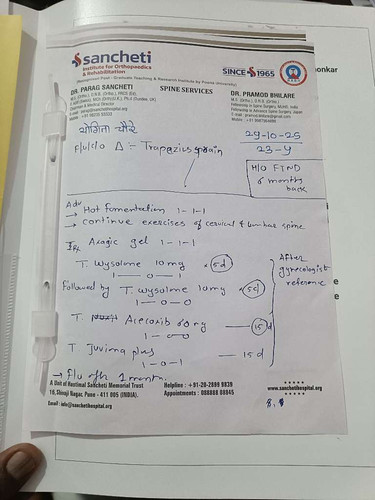 sancheti
Institute for Orthopaedics
& Rehabilitation
Management Post - Graduate Teaching & Research Institute by Poona University
SINCE 1965
onkar
DR. PARAG SANCHETI
SPINE SERVICES
DR. PRAMOD BHILARE
M.S. (Ortho.), D.N.B. (Ortho.)
Chairman & Medical Director
29-10-25
F/u/c/o Δ = Trapezius sprain
23-y
H/o FTND
6 months
back
Adv
→ Hot fomentation 1-1-1
→ continue exercises of cervical & lumbar spine
Rx
Axagic gel 1-1-1
T. Wysolone 10mg x 5d
1 — 0 — 1
Followby T. Wysolone 10mg x 5d
1 — 0 — 0
After
gynecologist
reference
T. Acecoxib 60mg — 15d
T. Juvima plus — 15d
1 - 0 - 1
→ F/u after 1 month.
A Unit of Hastimal Sancheti Memorial Trust
16, Shivaji Nagar, Pune - 411 005 (INDIA).
Email : info@sanchetihospital.org
Helpline : +91-20-2899 9839
Appointments : 088888 08945
www.sanchetihospital.org